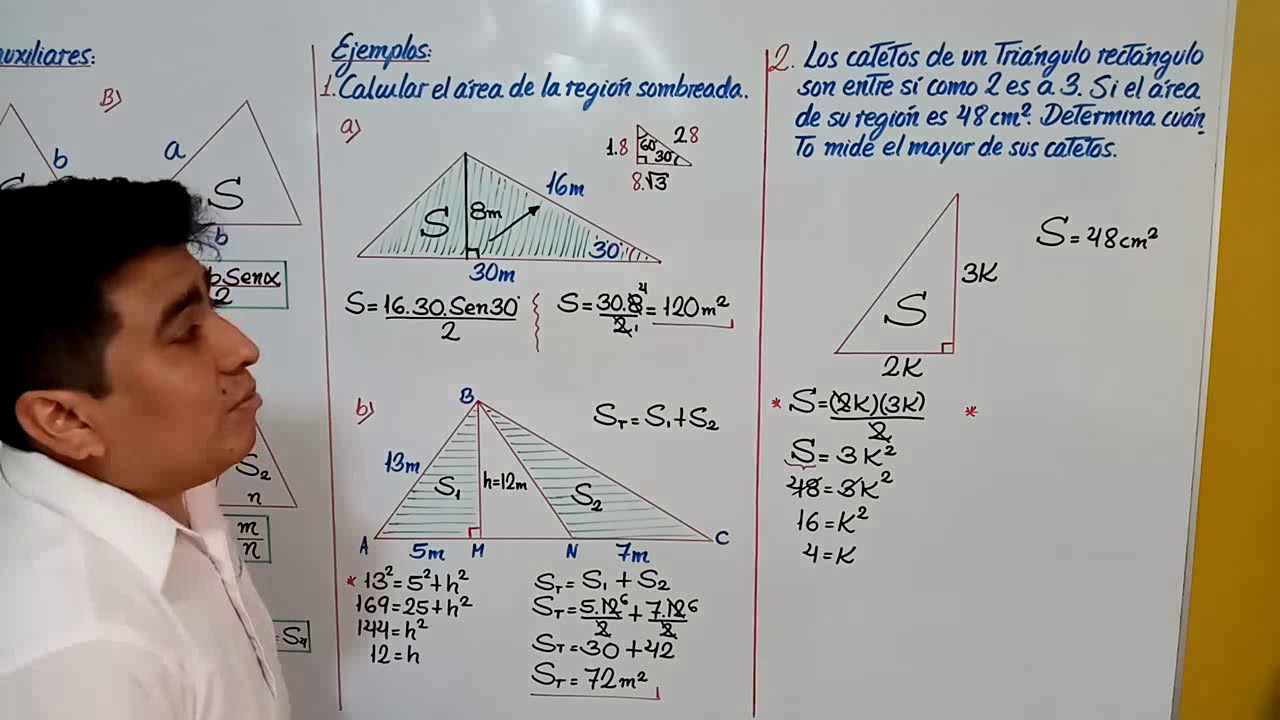 auxiliares:
B)
b
a
S
S
b
bSenα
2
S₂
n
m
n
=S₄
Ejemplos:
1. Calcular el área de la región sombreada.
a)
1.8
60°
30°
2.8
8.√3
S
8m
16m
30°
30m
S=16.30.Sen30°
2
S=30.8 4=120m²
2 1
b)
B
S_T=S₁+S₂
13m
S₁
h=12m
S₂
A
5m
M
N
7m
C
* 13²=5²+h²
169=25+h²
144=h²
12=h
S_T=S₁+S₂
S_T=5.12 6+7.12 6
2 2
S_T=30+42
S_T=72m²
2. Los catetos de un Triángulo rectángulo
son entre sí como 2 es a 3. Si el área
de su región es 48cm². Determina cuán
To mide el mayor de sus catetos.
S=48cm²
3K
S
2K
* S=(2K)(3K)
2
*
S=3K²
48=3K²
16=K²
4=K